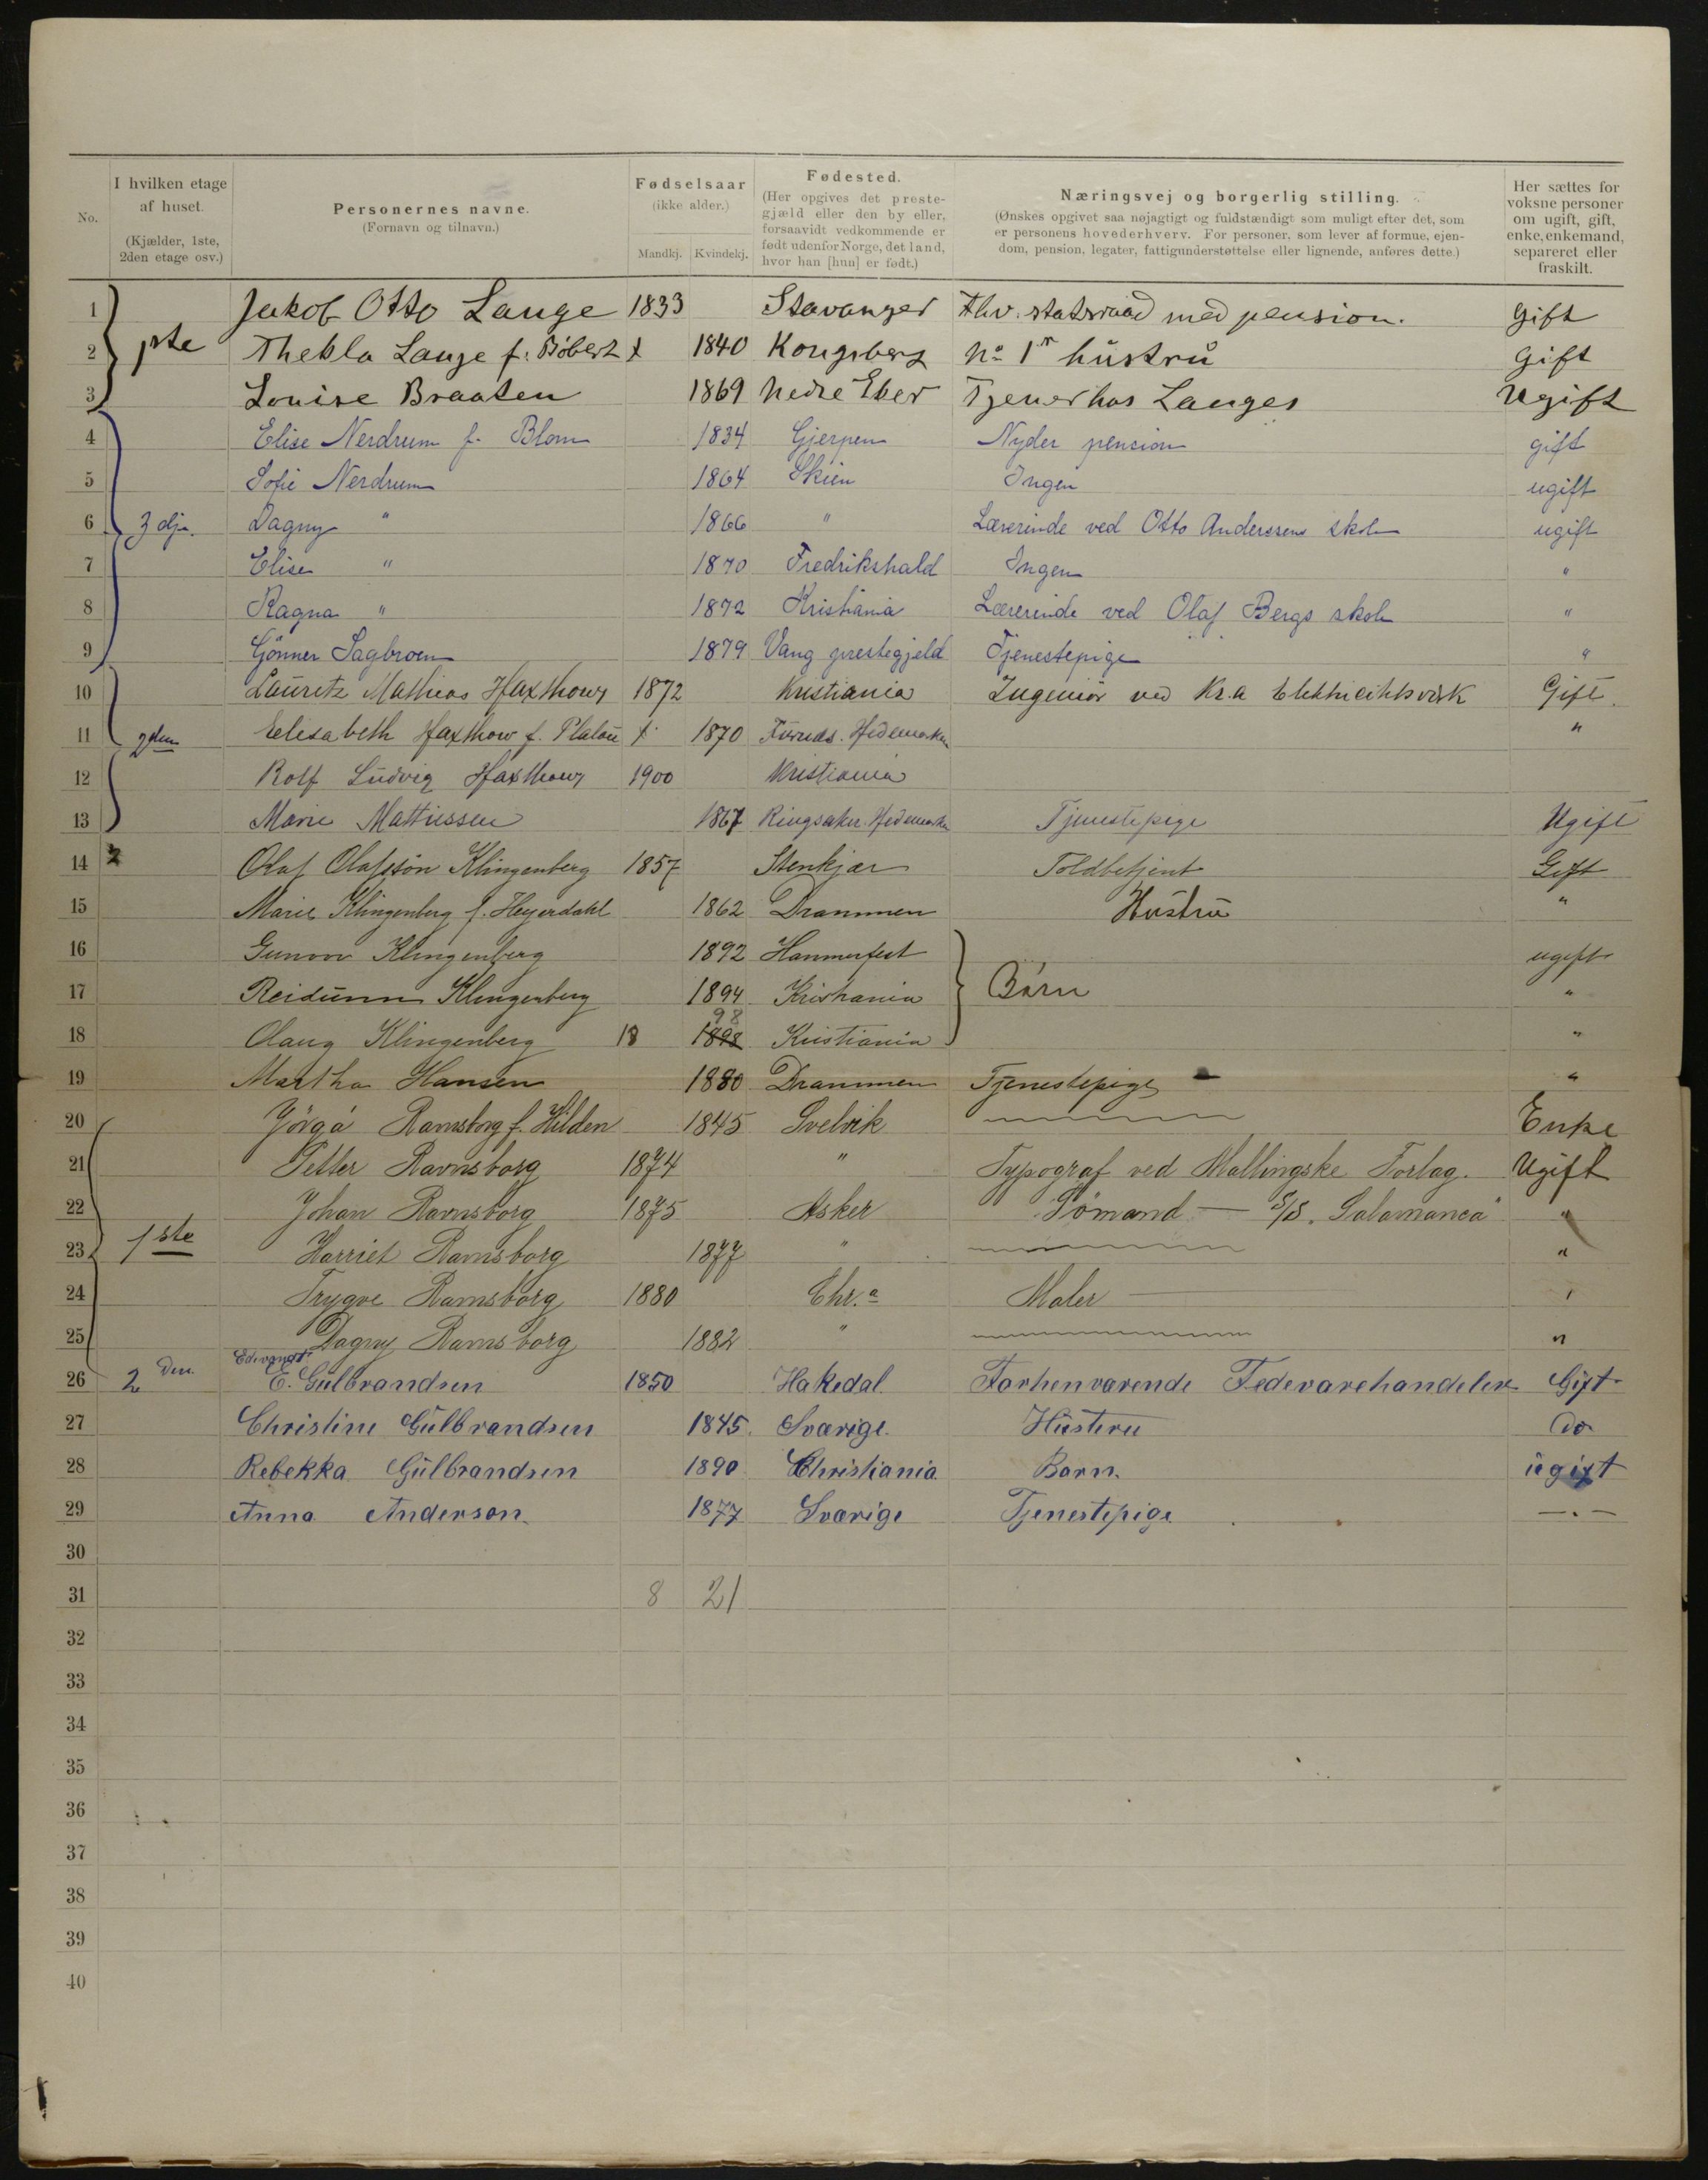 No. | I hvilken etage af huset. (Kjælder, 1ste, 2den etage osv.) | Personernes navne. (Fornavn og tilnavn.) | Fødselsaar (ikke alder.) Mandkj. Kvindekj. | Fødested. (Her opgives det prestegjæld eller den by eller, forsaavidt vedkommende er født udenfor Norge, det land, hvor han [hun] er født.) | Næringsvej og borgerlig stilling. (Ønskes opgivet saa nøjagtigt og fuldstændigt som muligt efter det, som er personens hovederhverv. For personer, som lever af formue, ejendom, pension, legater, fattigunderstøttelse eller lignende, anføres dette.) | Her sættes for voksne personer om ugift, gift, enke, enkemand, separeret eller fraskilt.
1 Jakob Otto Lange 1833 Stavanger Fhv. statsraad med pension. Gift
2 1ste Thekla Lange f. Bøbert x 1840 Kongsberg No 1s hustru Gift
3 Louise Braaten 1869 Nedre Eker Tjener hos Langes Ugift
4 Elise Nerdrum f. Blom 1834 Gjerpen Nyder pension gift
5 Sofie Nerdrum 1864 Skien Ingen ugift
6 3dje. Dagny " 1866 " Lærerinde ved Otto Anderssens skole ugift
7 Elise " 1870 Fredrikshald Ingen "
8 Ragna " 1872 Kristiania Lærerinde ved Olaf Bergs skole "
9 Gönner Sagbroen 1879 Vang prestegjeld Tjenestepige "
10 Lauritz Mathias Haxthow 1872 Kristiania Ingeniör ved Kr.a Elektricitetsverk Gift.
11 2den Elisabeth Haxthow f. Platou x 1870 Furnes. Hedemarken "
12 Rolf Ludvig Haxthow 1900 Kristiania
13 Marie Mathiessen 1867 Ringsaker. Hedemarken Tjenestepige Ugift
14 2 Olaf Olafsson Klingenberg 1857 Stenkjær Toldbetjent Gift
15 Marie Klingenberg f. Heyerdahl 1862 Drammen Hustru "
16 Gunvor Klingenberg 1892 Hammerfest ugift
17 Reidunn Klingenberg 1894 Kristiania Børn "
98
18 Olaug Klingenberg 18 1898 Kristiania "
19 Martha Hansen 1880 Drammen Tjenestepige "
20 Ramsborg f. Hilden 1845 Svelvik Enke
21 Petter Ramsborg 1874 " Typograf ved Mallingske Forlag. Ugift
22 Johan Ramsborg 1875 Asker Sömand — S/S. "Salamanca" "
23 1ste Harriet Ramsborg 1877 " "
24 Trygve Ramsborg 1880 Chr.a Maler "
25 Dagny Ramsborg 1882 " "
26 2den E. Gulbrandsen 1850 Hakedal Forhenværende Fedevarehandeler Gift
27 Christine Gulbrandsen 1845. Sværige. Hustru do
28 Rebekka Gulbrandsen 1890 Christiania Barn. ugift
29 Anna Anderson. 1877 Sværige Tjenestepige — . —
30
31 8 21
32
33
34
35
36
37
38
39
40